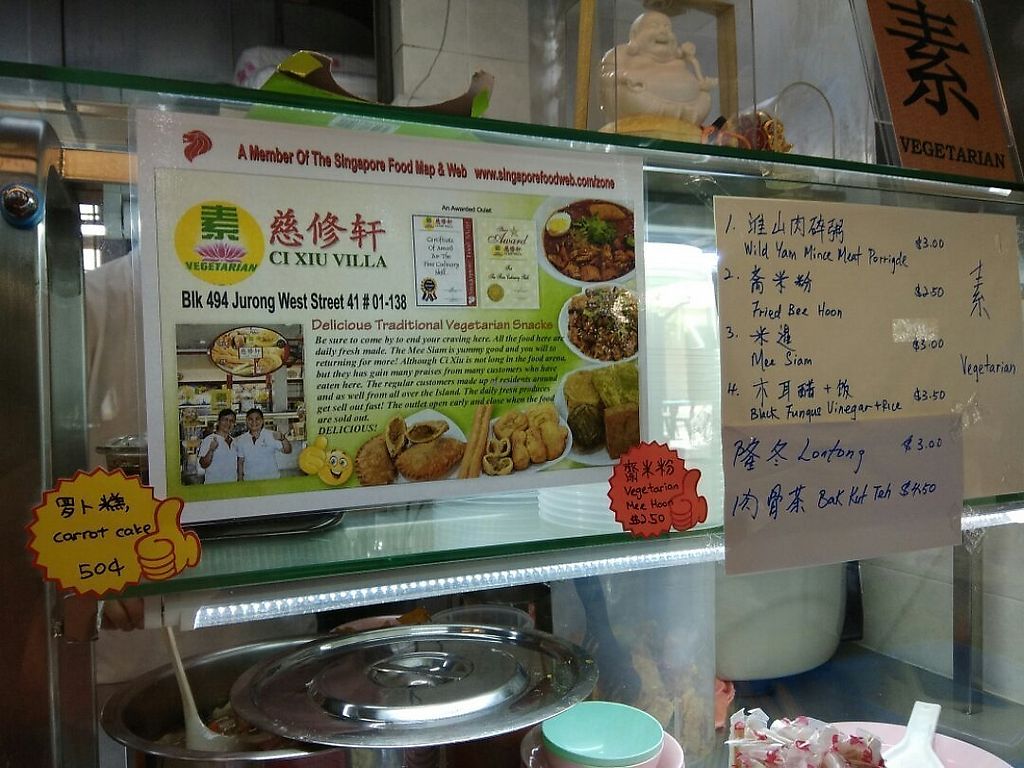 素
VEGETARIAN
A Member Of The Singapore Food Map & Web www.singaporefoodweb.com/zone
素
VEGETARIAN
慈修轩
CI XIU VILLA
An Awarded Outlet
Certificate
Of Award
Award
Blk 494 Jurong West Street 41 # 01-138
Delicious Traditional Vegetarian Snacks
Be sure to come by to end your craving here. All the food here are
daily fresh made. The Mee Siam is yummy good and you will to
returning for more! Although Ci Xiu is not long in the food arena,
but they has gain many praises from many customers who have
eaten here. The regular customers made up of residents around
and as well from all over the Island. The daily fresh produces
get sell out fast! The outlet open early and close when the food
are sold out.
DELICIOUS!
慈修轩
罗卜糕,
carrot cake
50¢
斋米粉
Vegetarian
Mee Hoon
$2.50
1. 淮山肉碎粥 $3.00
Wild Yam Mince Meat Porrigde
2. 斋米粉 $2.50
Fried Bee Hoon
3. 米暹 $3.00
Mee Siam
4. 木耳醋+饭 $3.50
Black Fungus Vinegar+Rice
素
Vegetarian
隆冬 Lontong $3.00
肉骨茶 Bak Kut Teh $4.50